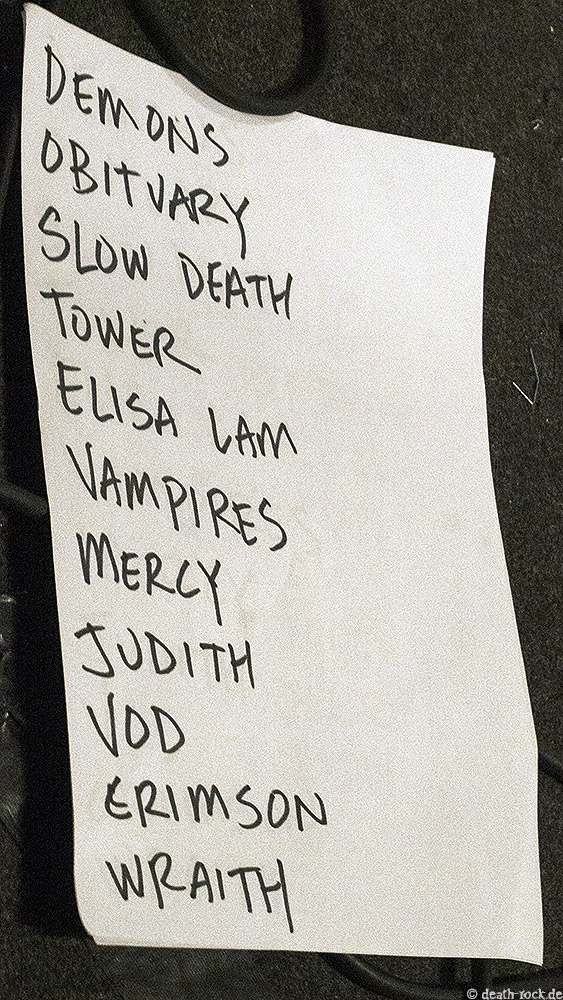 DEMONS
OBITUARY
SLOW DEATH
TOWER
ELISA LAM
VAMPIRES
MERCY
JUDITH
VOD
ERIMSON
WRAITH
© death-rock.de